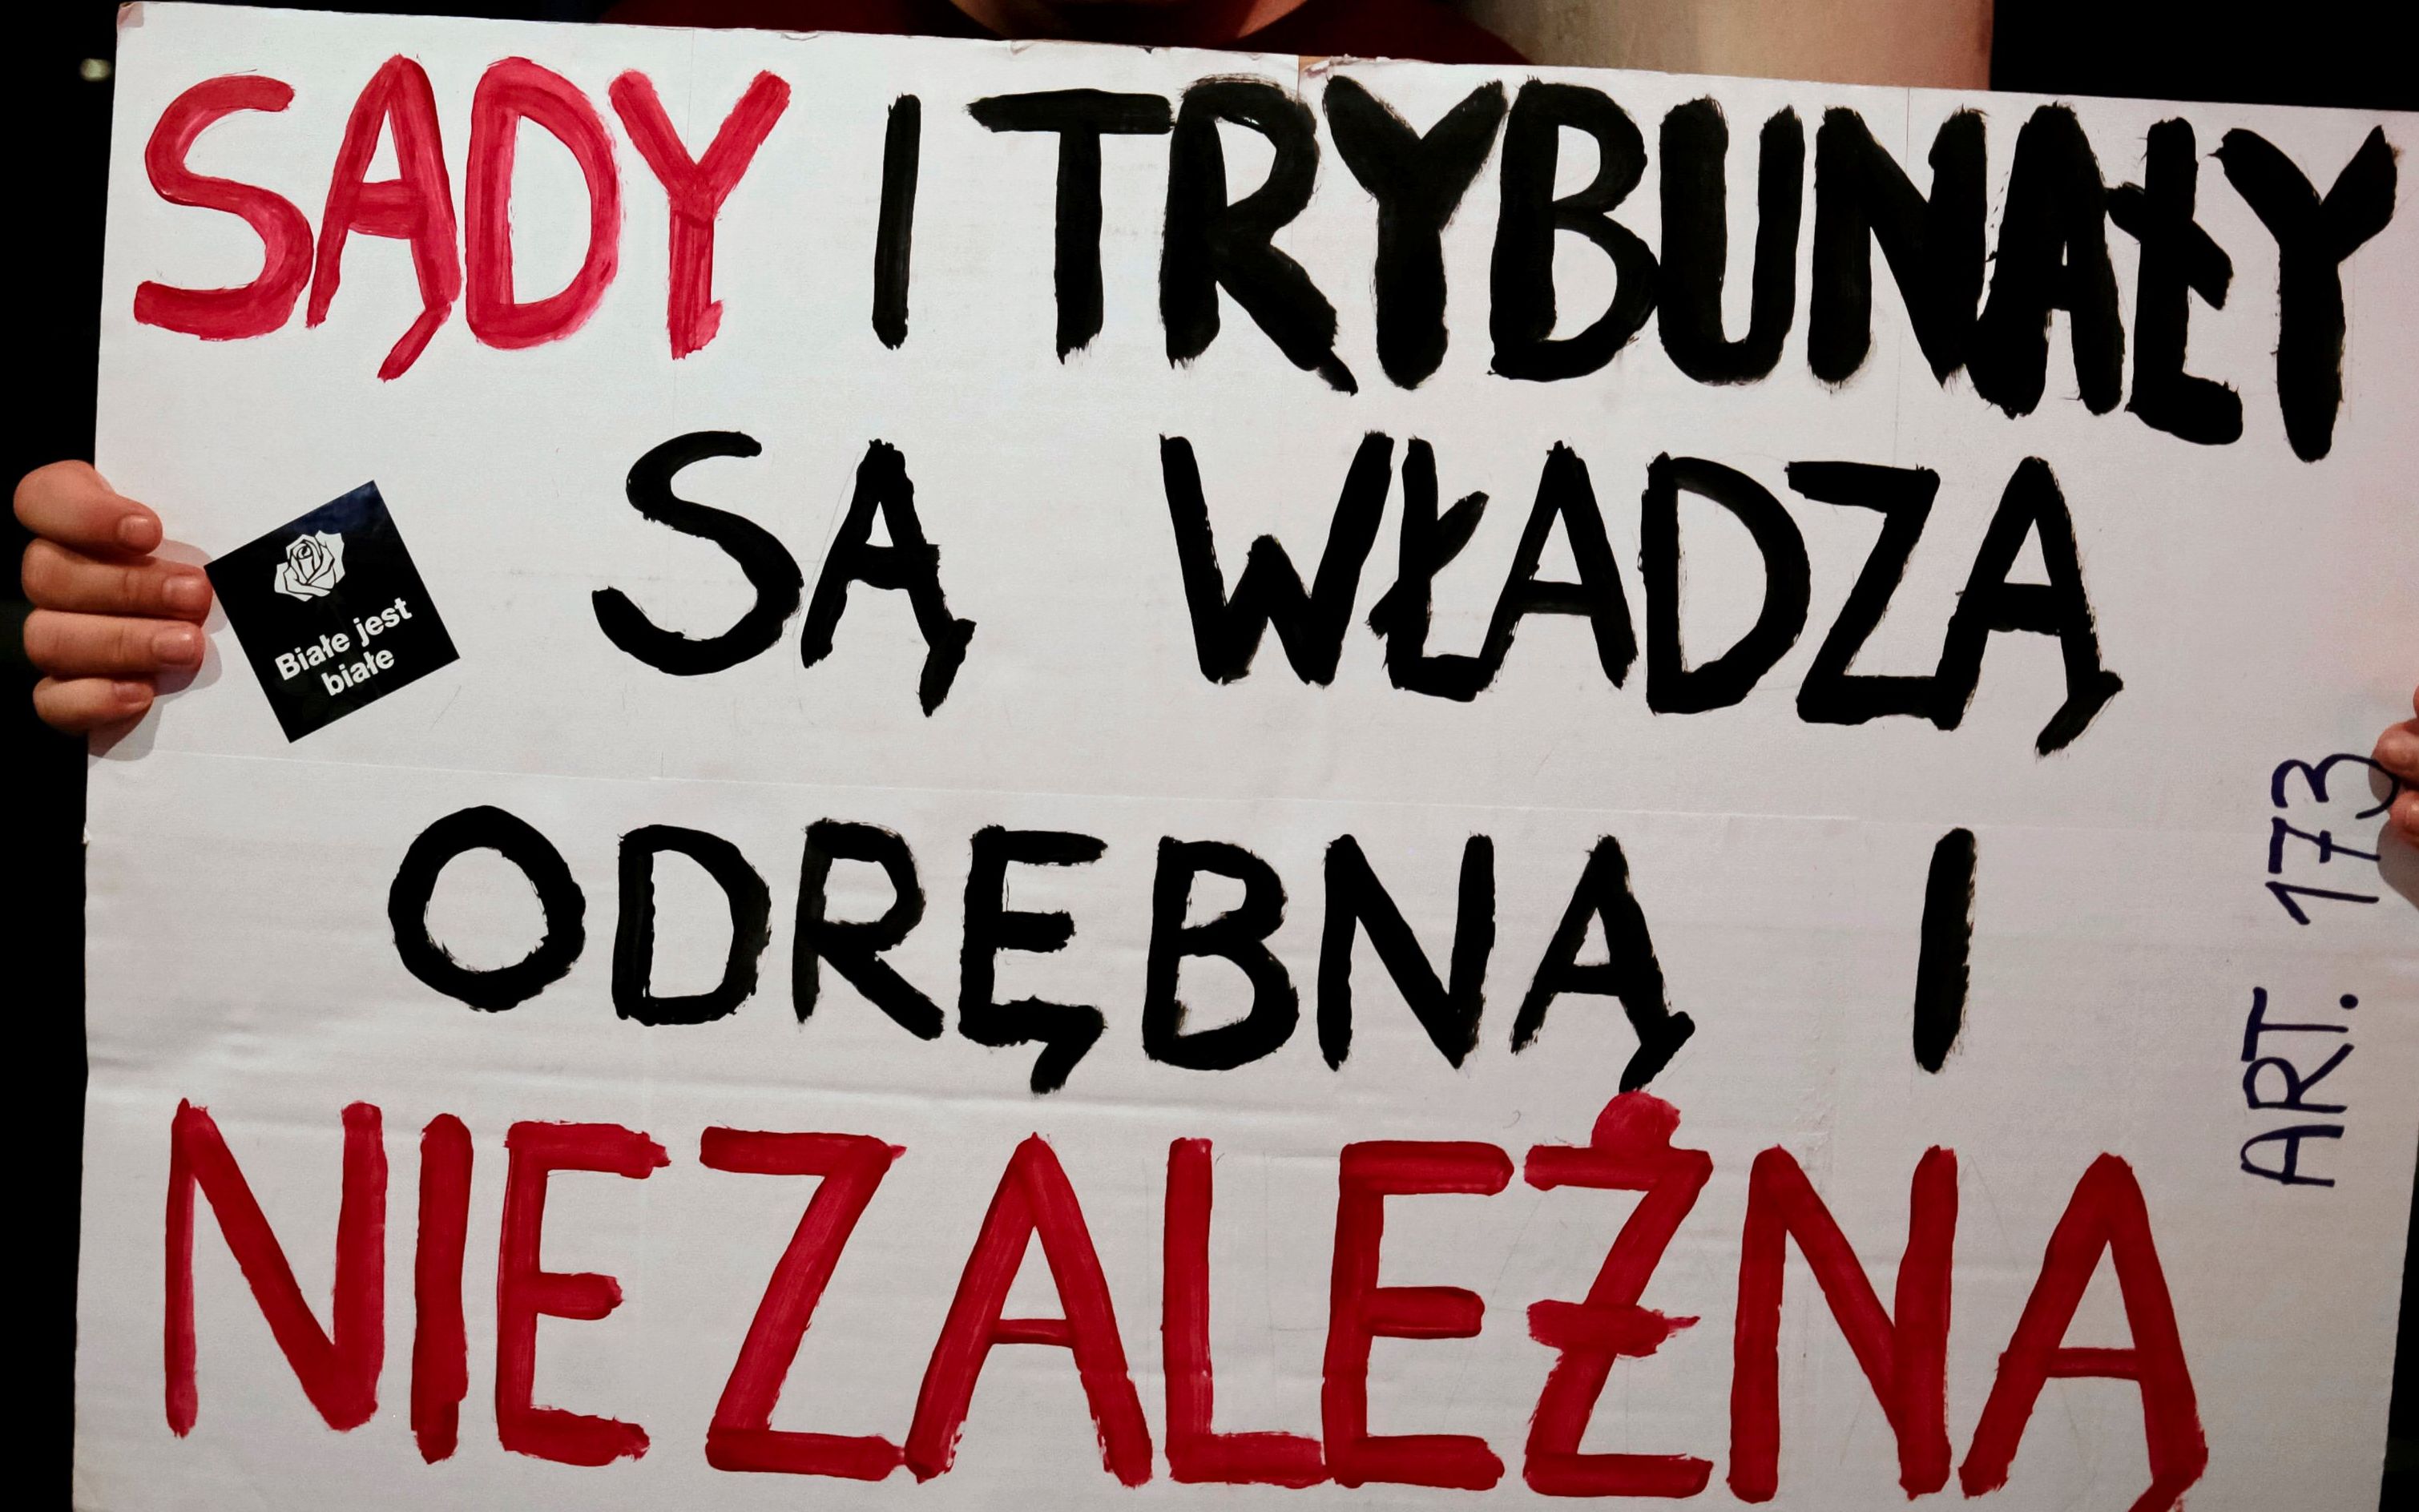 SĄDY I TRYBUNAŁY
SĄ WŁADZĄ
Białe jest
białe
ODRĘBNĄ I
NIEZALEŻNĄ
ART. 173